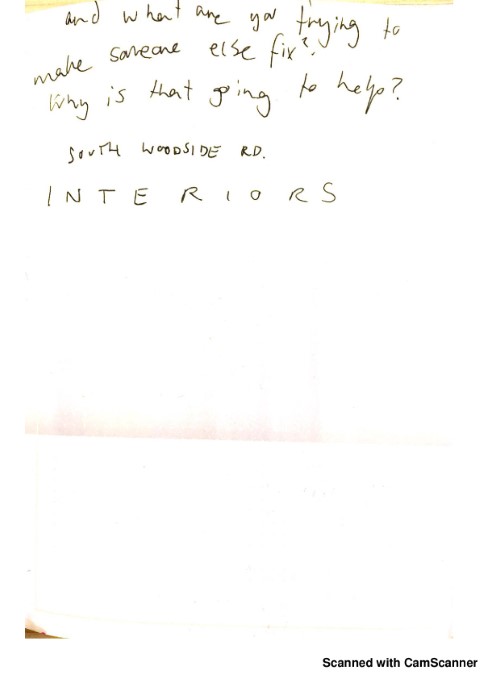 and what are you trying to
make someone else fix?
Why is that going to help?
SOUTH WOODSIDE RD.
INTERIORS
Scanned with CamScanner